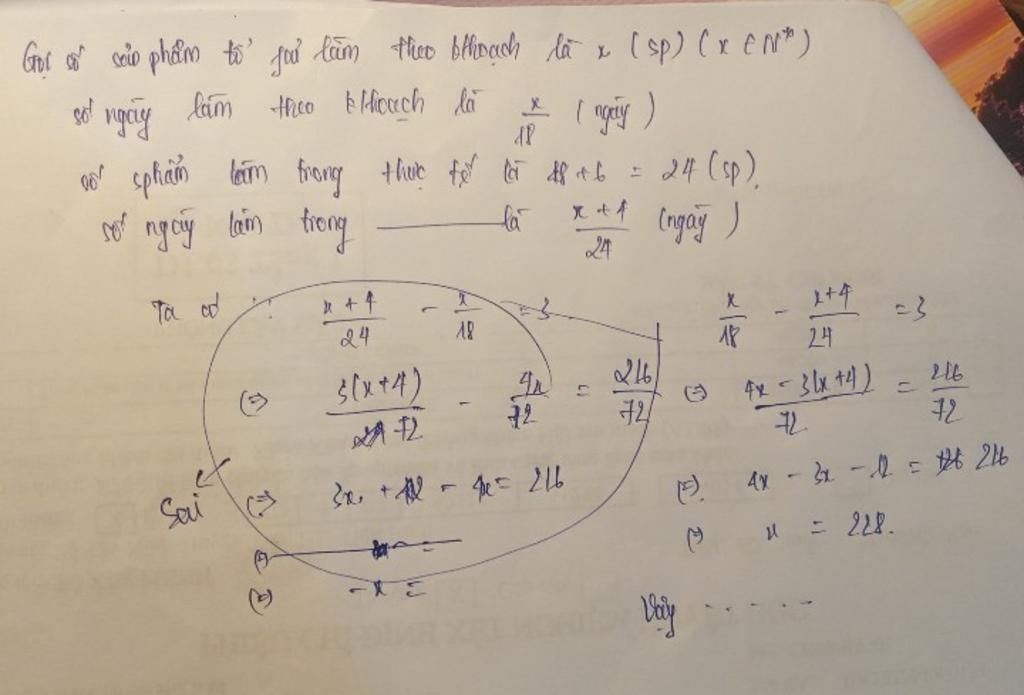 Gọi số sản phẩm tổ phải làm theo khoạch là x (sp) (x ∈ N*)
số ngày làm theo khoạch là x/18 (ngày)
số sphẩm làm trong thực tế là 18 + 6 = 24 (sp).
số ngày làm trong ——— là (x + 4)/24 (ngày)
Ta có : (x + 4)/24 - x/18 = 3
(=) 3(x + 4)/72 - 4x/72 = 216/72
Sai (=) 3x + 12 - 4x = 216
(=) - x =
x/18 - (x+4)/24 = 3
(=) (4x - 3(x+4))/72 = 216/72
(=) 4x - 3x - 12 = 216
(=) x = 228.
Vậy - - - - -